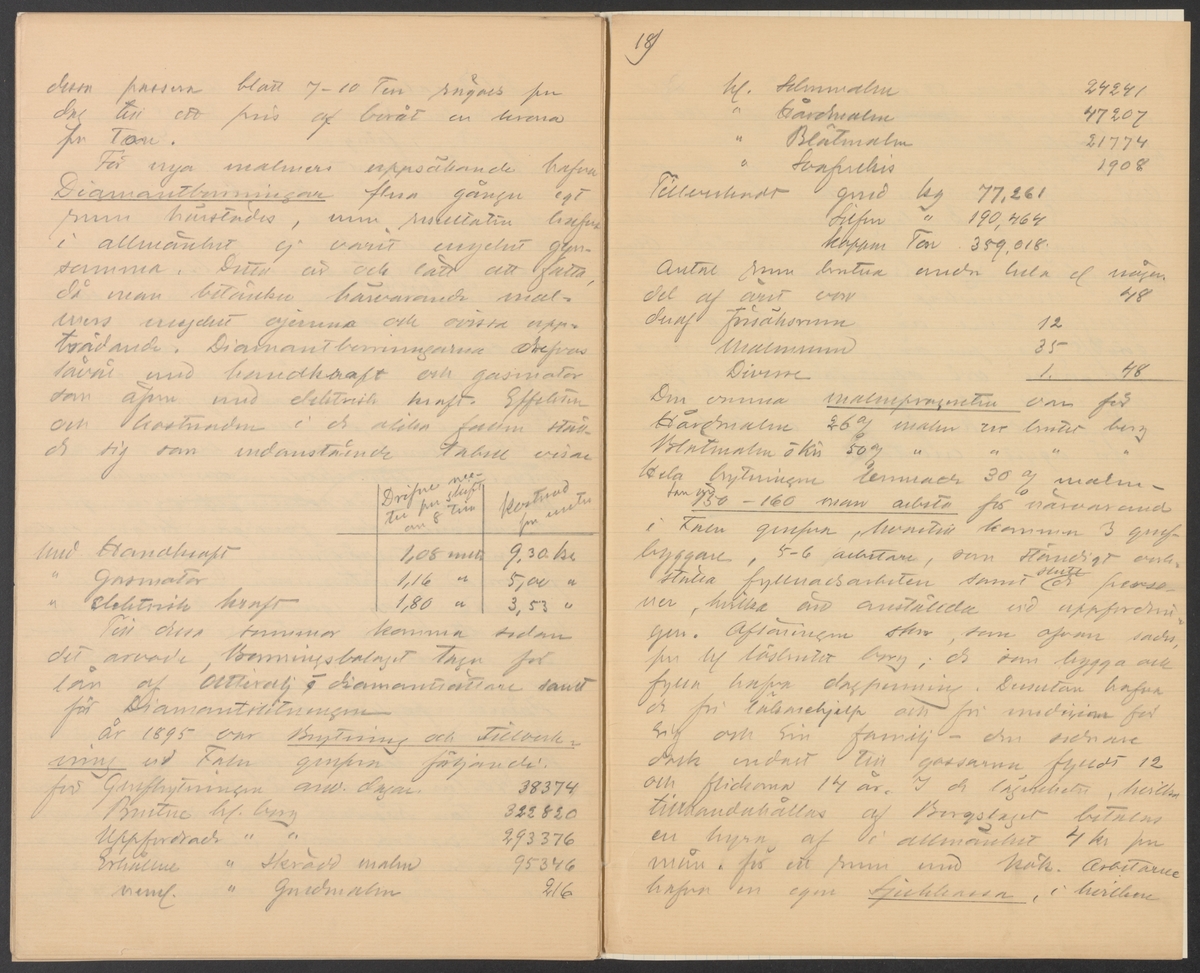 dessa passera blott 7-10 Ton rågods pr
dag till ett pris af boråt en krona
pr Ton.
För nya malmers uppsökande hafva
Diamantborrningar flera gånger egt
rum härstädes, men resultaten hafva
i allmänhet ej varit mycket gynn-
samma. Detta är och lätt att fatta,
då man betänker härvarande mal-
mers mycket ojemna och ovissa upp-
trädande. Diamantborrningarna drefvos
såväl med handkraft och gasmotor
som äfven med elektrisk kraft. Effekten
och kostnaden i de olika fallen stäl-
de sig som nedanstående tabell visar
Drifne me- Kostnad
ter per skift pr meter
om 8 tim
med Handkraft 1,08 meter 9,30 kr
" Gasmotor 1,16 " 5,00 "
" elektrisk kraft 1,80 " 3,53 "
Till dessa summor komma sedan
det arvode, Borrningsbolaget tager för
lån af diamantsättare samt
för Diamantslitningen
År 1895 var Brytning och Tillverk-
ning vid Falu grufva följande:
för Grufbrytningen anv. dagar 38374
Brutne hl. berg 322820
Uppfordrade " " 293376
Erhållne " Skrädd malm 95346
neml. " Guldmalm 216
18)
hl. Smmalm 24241
" Hårdmalm 47207
" Blötmalm 21774
" Svafvelkis 1908
Tillverkadt guld kg 77,261
Silfver " 190,464
koppar Ton 359,018.
Antal rum brutna under hela el. någon
del af året var 48
deraf försöksrum 12
Malmrum 35
Diverse 1. 48
Den vunna malmprocenten var för
Hårdmalm 26% malm ur brutet berg
Blötmalm o kis 50% " " " "
Hela brytningen lemnade 30% malm-
150-160 man arbeta för närvarande
i Falu grufva, hvartill komma 3 gruf-
byggare, 5-6 arbetare, som ständigt verk-
ställa fyllnadsarbeten samt de perso-
ner, hvilka äro anställda vid uppfordrin-
gen. Aflöningen sker, som ofvan sades,
pr hl löstbrutet berg; de som bygga och
fylla hafva dagpenning. Dessutom hafva
de fri läkarehjelp och fri medicin för
sig och sin familj - den sednare
dock endast till gossarna fyllt 12
och flickorna 14 år. I de lägenheter, hvilka
tillhandahållas af Bergslaget betalas
en hyra af i allmänhet 4 kr pr
mån. för ett rum med kök. Arbetarne
hafva en egen Sjukkassa, i hvilken